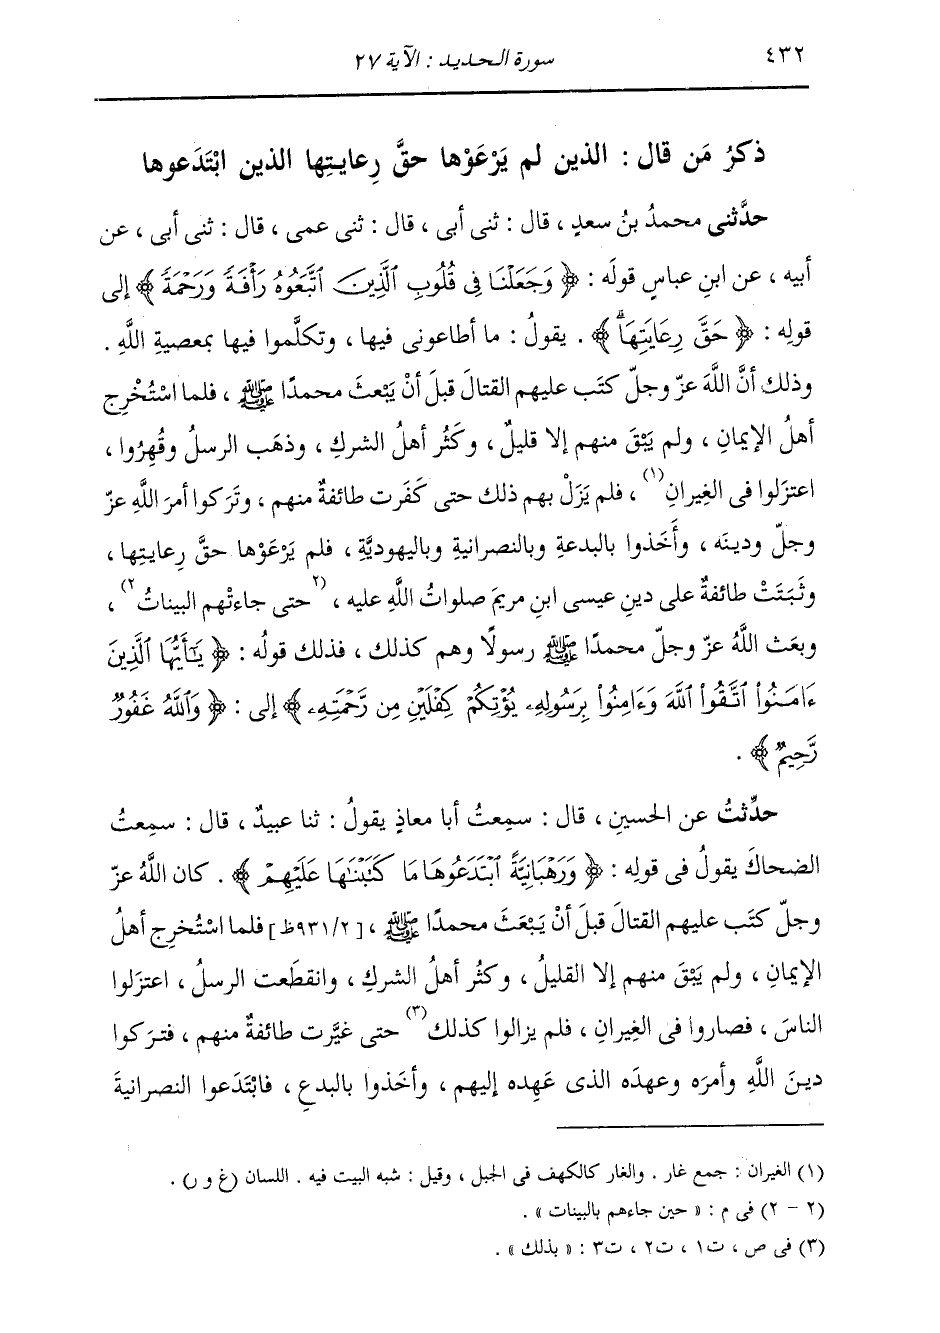 ٤٣٢
سورة الحديد : الآية ٢٧
ذكرُ مَن قال : الذين لم يَرْعَوْها حقَّ رِعايتِها الذين ابْتَدَعوها
حدَّثنى محمدُ بنُ سعدٍ ، قال : ثنى أبى ، قال : ثنى عمى ، قال : ثنى أبى ، عن
أبيه ، عن ابنِ عباسٍ قولَه : ﴿ وَجَعَلْنَا فِى قُلُوبِ ٱلَّذِينَ ٱتَّبَعُوهُ رَأْفَةً وَرَحْمَةً ﴾ إلى
قولِه : ﴿ حَقَّ رِعَايَتِهَاۖ ﴾ . يقولُ : ما أطاعونى فيها ، وتكلَّموا فيها بمعصيةِ اللَّهِ .
وذلك أنَّ اللَّهَ عزّ وجلّ كتَب عليهم القتالَ قبلَ أنْ يَبْعثَ محمدًا ﷺ ، فلما اسْتُخْرِج
أهلُ الإيمانِ ، ولم يَبْقَ منهم إلا قليلٌ ، وكَثُر أهلُ الشركِ ، وذهَب الرسلُ وقُهِرُوا ،
اعتزَلوا فى الغِيرانِ(١) ، فلم يَزَلْ بهم ذلك حتى كَفَرت طائفةٌ منهم ، وتَرَكوا أمرَ اللَّهِ عزّ
وجلّ ودينَه ، وأَخَذوا بالبدعةِ وبالنصرانيةِ وباليهوديَّةِ ، فلم يَرْعَوْها حقَّ رِعايتِها ،
وثَبَتَتْ طائفةٌ على دينِ عيسى ابنِ مريمَ صلواتُ اللَّهِ عليه ، (٢حتى جاءتْهم البيناتُ٢) ،
وبعَث اللَّهُ عزّ وجلّ محمدًا ﷺ رسولًا وهم كذلك ، فذلك قولُه : ﴿ يَـٰٓأَيُّهَا ٱلَّذِينَ
ءَامَنُوا۟ ٱتَّقُوا۟ ٱللَّهَ وَءَامِنُوا۟ بِرَسُولِهِۦ يُؤْتِكُمْ كِفْلَيْنِ مِن رَّحْمَتِهِۦ ﴾ إلى : ﴿ وَٱللَّهُ غَفُورٌ
رَّحِيمٌ ﴾ .
حدِّثتُ عن الحسينِ ، قال : سمِعتُ أبا معاذٍ يقولُ : ثنا عبيدٌ ، قال : سمِعتُ
الضحاكَ يقولُ فى قولِه : ﴿ وَرَهْبَانِيَّةً ٱبْتَدَعُوهَا مَا كَتَبْنَـٰهَا عَلَيْهِمْ ﴾ . كان اللَّهُ عزّ
وجلّ كتَب عليهم القتالَ قبلَ أنْ يَبْعَثَ محمدًا ﷺ ، [٩٣١/٢ظ] فلما اسْتُخرِج أهلُ
الإيمانِ ، ولم يَبْقَ منهم إلا القليلُ ، وكثُر أهلُ الشركِ ، وانقطَعت الرسلُ ، اعتزَلوا
الناسَ ، فصاروا فى الغِيرانِ ، فلم يزالوا كذلك(٣) حتى غيَّرت طائفةٌ منهم ، فترَكوا
دينَ اللَّهِ وأمرَه وعهدَه الذى عَهِده إليهم ، وأخَذوا بالبدعِ ، فابْتَدَعوا النصرانيةَ
(١) الغيران : جمع غار . والغار كالكهف فى الجبل ، وقيل : شبه البيت فيه . اللسان (غ و ر) .
(٢ - ٢) فى م : « حين جاءهم بالبينات » .
(٣) فى ص ، ت١ ، ت٢ ، ت٣ : « بذلك » .